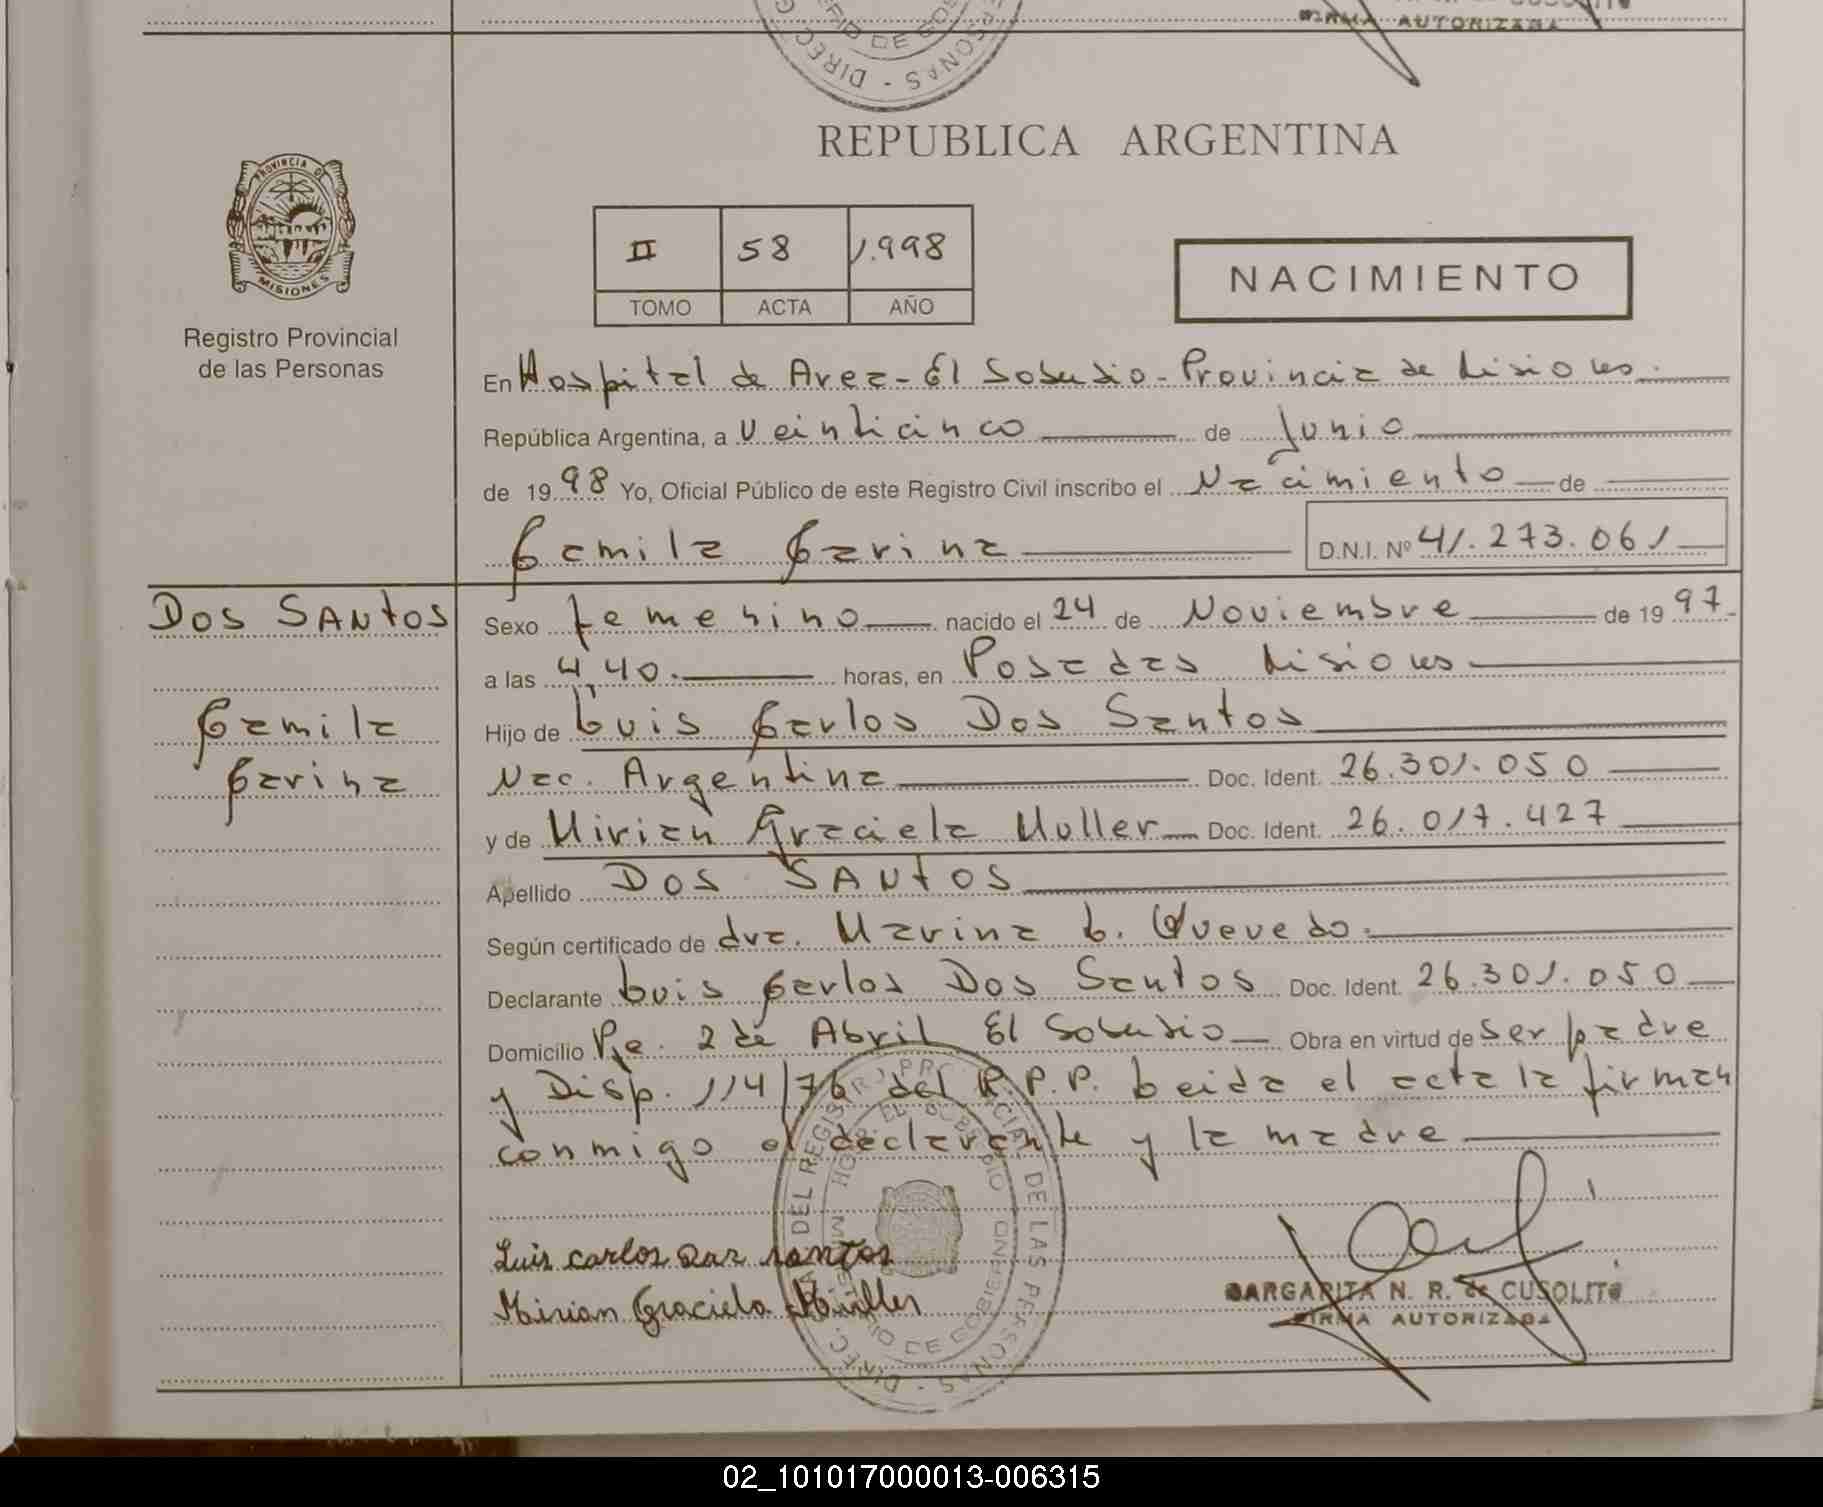 FIRMA AUTORIZADA
DIREC. - PERSONAS
REPUBLICA ARGENTINA
PROVINCIA DE
MISIONES
Registro Provincial
de las Personas
II 58 1.998
TOMO ACTA AÑO
NACIMIENTO
En Hospital de Area - El Soberbio - Provincia de Misiones.
República Argentina, a Veinticinco de Junio
de 1998 Yo, Oficial Público de este Registro Civil inscribo el Nacimiento de
Camila Carina D.N.I. Nº 41.273.061
DOS SANTOS
Camila
Carina
Sexo femenino nacido el 24 de Noviembre de 1997
a las 4,40. horas, en Posadas Misiones
Hijo de Luis Carlos Dos Santos
Nac. Argentina Doc. Ident. 26.301.050
y de Mirian Graciela Muller Doc. Ident. 26.017.427
Apellido DOS SANTOS
Según certificado de dra. Marina L. Quevedo.
Declarante Luis Carlos Dos Santos Doc. Ident. 26.301.050
Domicilio Pje. 2 de Abril El Soberbio Obra en virtud de ser padre
y Disp. 114/76 del R.P.P. Leida el acta la firman
conmigo el declarante y la madre
Luis carlos Dos santos
Mirian Graciela Müller
MARGARITA N. R. de CUSOLITO
FIRMA AUTORIZADA
02_101017000013-006315